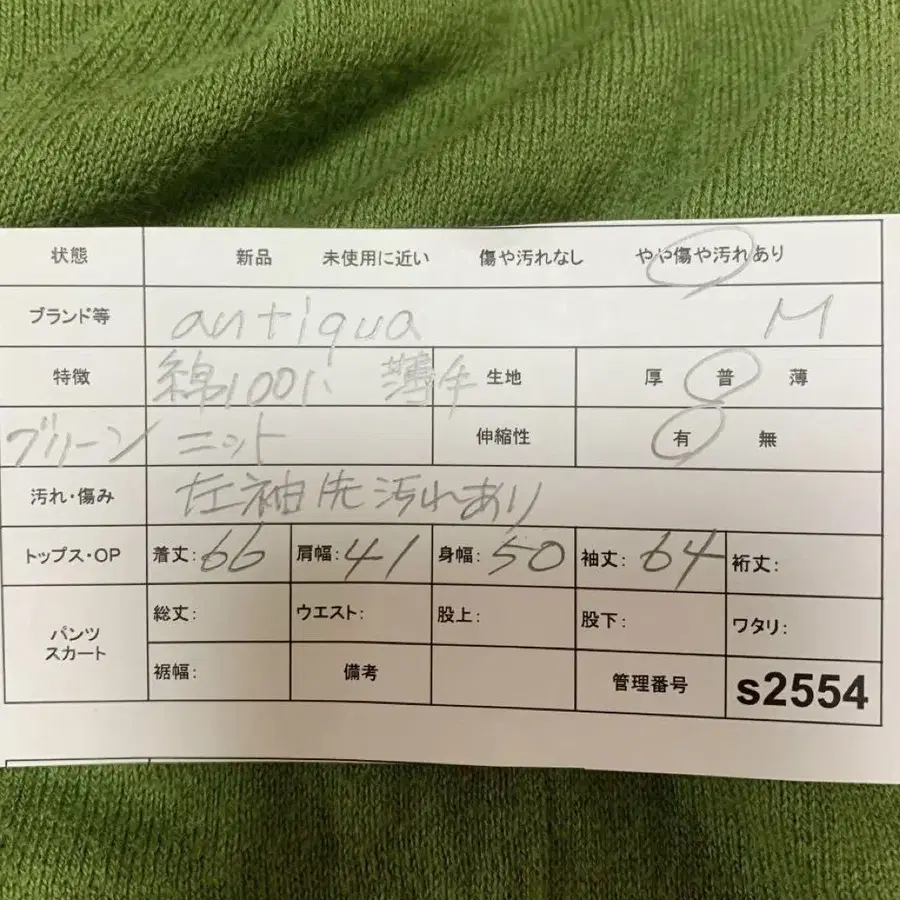 状態 新品 未使用に近い 傷や汚れなし やや傷や汚れあり
ブランド等 antiqua M
特徴 綿100% 薄手 生地 厚 普 薄
グリーン ニット 伸縮性 有 無
汚れ・傷み 左袖先汚れあり
トップス・OP 着丈:66 肩幅:41 身幅:50 袖丈:64 裄丈:
パンツ スカート 総丈: ウエスト: 股上: 股下: ワタリ:
裾幅: 備考 管理番号 s2554